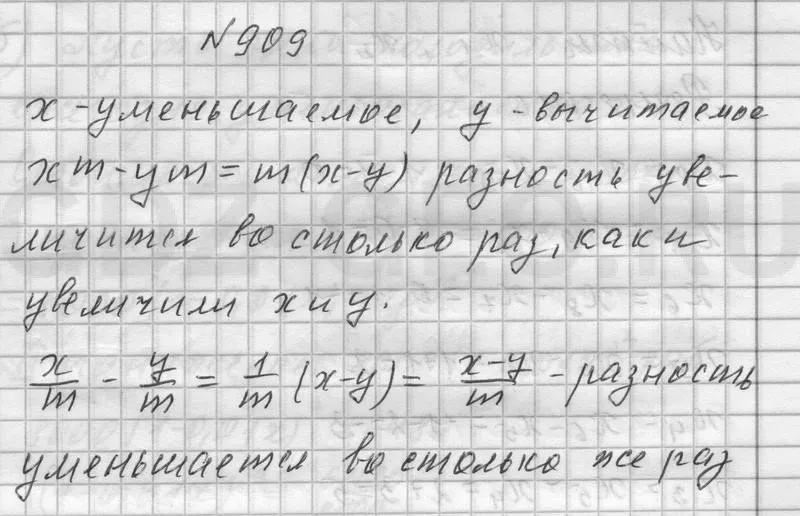 №909
x - уменьшаемое, y - вычитаемое
xm - ym = m(x-y) разность уве-
личится во столько раз, как и
увеличили x и y.
x/m - y/m = 1/m (x-y) = x-y/m - разность
уменьшается во столько же раз